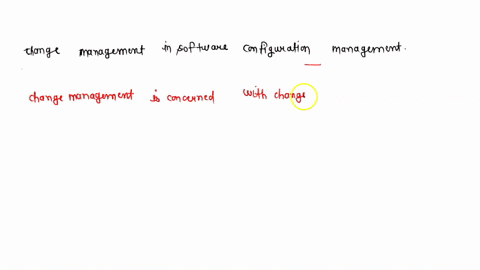 change management in software configuration management.
change management is concerned with change